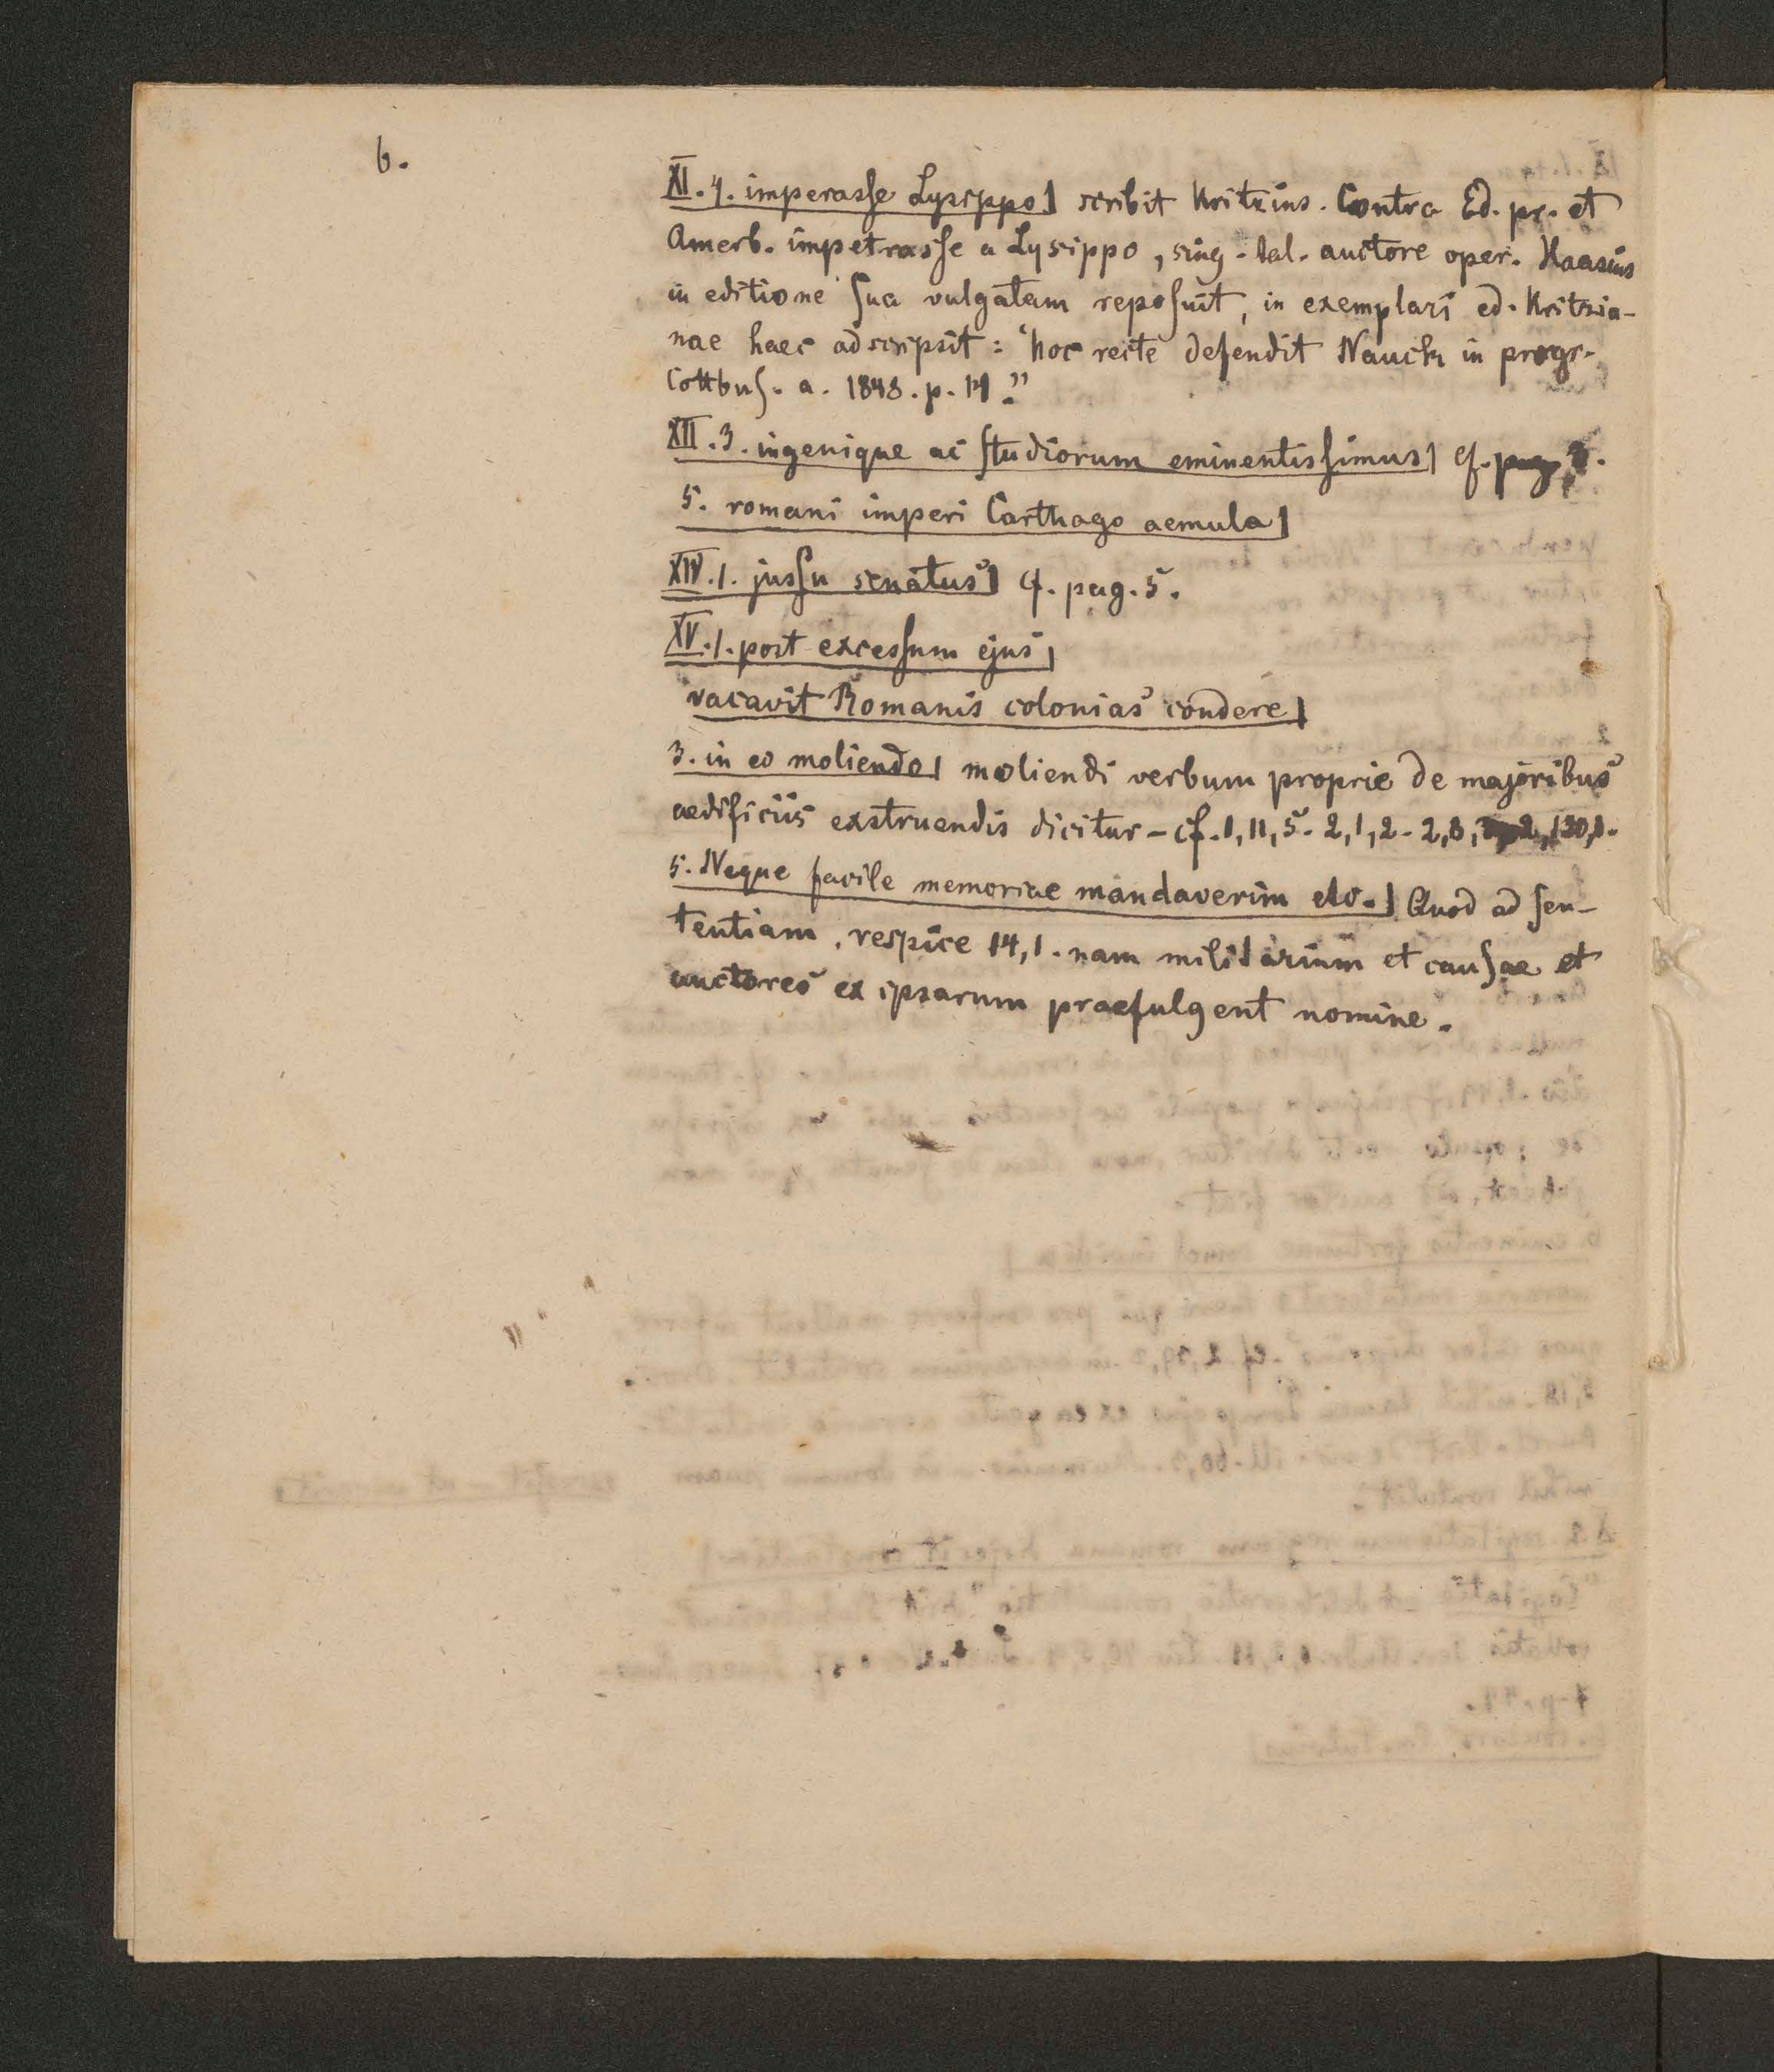 6.
XI. 4. imperasse Lysippo] scribit Kritzius. Contra Ed. pr. et
Amerb. impetrasse a Lysippo, sing. tal. auctore oper. Haasius
in editione sua vulgatam reposuit, in exemplari ed. Kritzia-
nae haec adscripsit: "hoc recte defendit Nauck in progr.
Cottbus. a. 1848. p. 14."
XII. 3. ingenique ac studiorum eminentissimus] cf.
5. romani imperi Carthago aemula]
XIV. 1. jussu senatus] cf. pag. 5.
XV. 1. post excessum ejus]
vacavit Romanis colonias condere]
3. in eo moliendo] moliendi verbum proprie de majoribus
aedificiis exstruendis dicitur – cf. 1, 11, 5. 2, 1, 2. 2, 8,
5. Neque facile memoriae mandaverim etc.] Quod ad sen-
tentiam, respice 14, 1. nam militarium et causae et
auctores ex ipsarum praefulgent nomine.